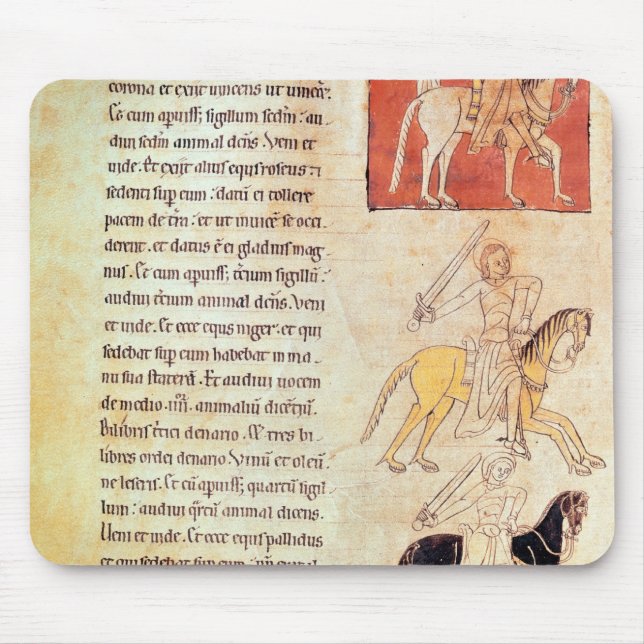 corona et exiit vincens ut vincꝫ.
Et cum apuiss; sigillum secdm̄: au
diui secdm̄ animal dcēs. Veni et
uide. Et exiit alius equs roseus: ⁊
sedenti sup eum: datū ei tollere
pacem de tr̄a: et ut inuicē se occi
derent. et datus ē ei gladius mag
nus. Et cum apuiss; tc̄ium sigillū:
audiui tc̄ium animal dcēs. Veni
et uide. Et ecce equs niger: et qui
sedebat sup eum habebat in ma
nu sua staterā. Et audiui uocem
de medio .iiii. animaliū dicētiū.
Bilibris tt̄ici denario. et tres bi
libres ordei denario. Vinū et oleū
ne leseris. Et cū apuiss; quartū sigil
lum: audiui qrtū animal dicens.
Ueni et uide. Et ecce equs pallidus
et qui sedebat sup eum: